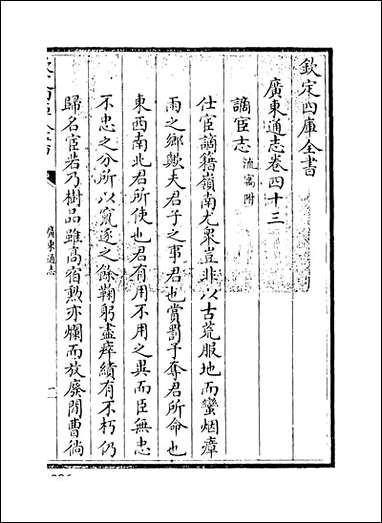 欽定四庫全書
廣東通志卷四十三
謫宦志 流寓附
仕宦謫籍嶺南尤衆豈非以古荒服地而蠻烟瘴
雨之鄉歟夫君子之事君也賞罰予奪君所命也
東西南北君所使也君有用不用之異而臣無忠
不忠之分所以竄逐之餘鞠躬盡瘁績有不朽仍
歸名宦若乃樹品雖高宿勲亦爛而放廢閒曹徜
廣東通志
一